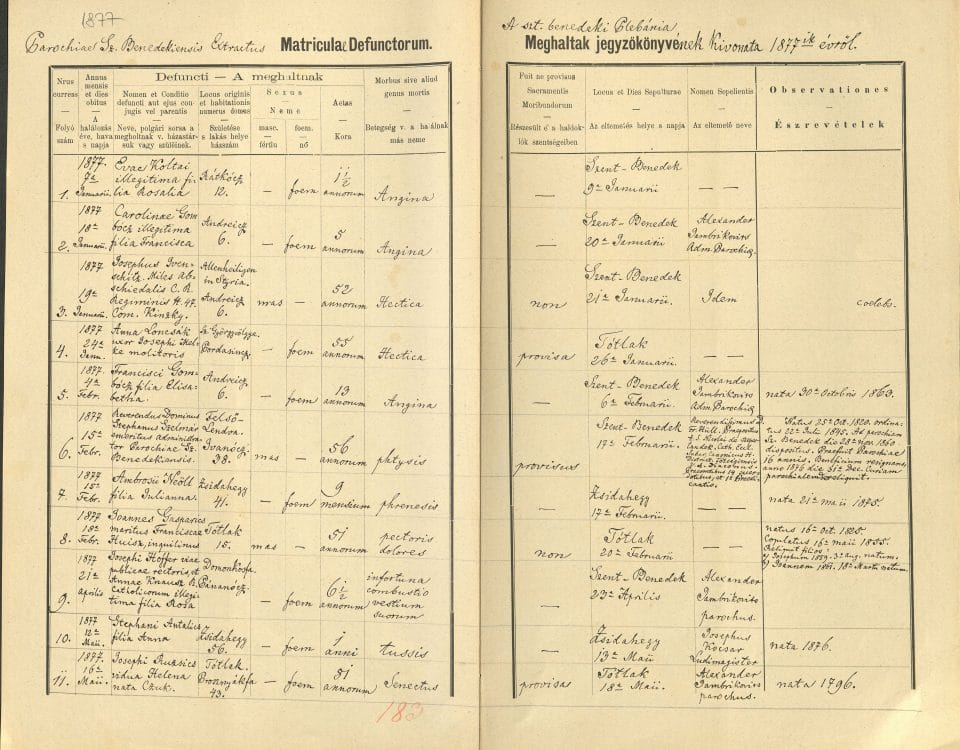 1877
Parochiae Sz. Benedekiensis Extractus Matricula Defunctorum.
Nrus currens — Folyó szám
Annus mensis et dies obitus — A halálozás éve, hava s napja
Defuncti — A meghaltnak
Nomen et Conditio defuncti aut ejus conjugis vel parentis
Neve, polgári sorsa a megholtnak v. házastársuk vagy szülőinek.
Locus originis et habitationis numerus domus
Születése s lakás helye házszám
Sexus — Neme
masc. — férfiu
foem. — nő
Aetas — Kora
Morbus sive aliud genus mortis
Betegség v. a halálnak más neme
1. 1877. 7a Januarii. Evae Koltai illegitima filia Rosalia Rátkócz 12. — foem 1 1/2 annorum Angina
2. 1877 18a Januarii. Carolinae Gombócz illegitima filia Francisca Andreicz 6. — foem 5 annorum Angina
3. 1877 19a Januarii. Josephus Miles Abschiedalis C. R. Regiminis H. 47. Com. Kinzky. Allenheiligen in Styria. Andreicz 6. mas — 52 annorum Hectica
4. 1877 24a Janu. Anna Loncsák uxor Josephi molitoris — foem 55 annorum Hectica
5. 1877. 4a Febr. Francisci Gombócz filia Elisabetha. Andreicz. 6. — foem 13 annorum Angina
6. 1877 15a Febr. Reverendus Dominus Stephanus emeritus administrator Parochiae Sz. Benedekiensis. Felső-Lendva. Ivanócz. 38. mas — 56 annorum phtysis
7. 1877 15a Febr. Ambrosii filia Julianna. Zsidahegy 41. — foem 9 mensium phrenesis
8. 1877 18a Febr. Joannes Gasparics maritus Franciscae Huisz, inquilinus Tótlak 15. mas — 51 annorum pectoris dolores
9. 1877 21a Aprilis Josephi Höffer viae publicae rectoris, et Annae Knausz R. Catholicorum illegitima filia Rosa Domonkosfa. Pánanócz. — foem 6 1/2 annorum infortuna combustio vestium suorum
10. 1877 12a Maii. Stephani Antalics filia Anna Zsidahegy 56. — foem 1 anni tussis
11. 1877. 16a Maii. Josephi Ruzsics vidua Helena nata Czuk. Tótlak. 43. — foem 81 annorum Senectus
183
A szt. benedeki Plebánia
Meghaltak jegyzőkönyvének Kivonata 1877ik évről.
Fuit ne provisus Sacramentis Moribundorum
Részesült é a haldoklók szentségeiben
Locus et Dies Sepulturae
Az eltemetés helye a napja
Nomen Sepelientis
Az eltemető neve
Observationes
Észrevételek
— Szent-Benedek 9a Januarii — —
— Szent-Benedek 20a Januarii Alexander Jambrikovits Adm. Parochiae
non Szent-Benedek 21a Januarii. Idem coelebs.
provisa Tótlak 26a Januarii. — —
— Szent-Benedek 6a Februarii. Alexander Jambrikovits Adm. Parochiae nata 30a Octobris 1863.
provisus Szent-Benedek 17a Februarii. Reverendissimus D. Fr. Hüll. Praepositus
Natus 25a Oct. 1820. ordinatus 22a Julii 1845. Ad parochiam Sz. Benedek die 28a nov. 1860 dispositus. Praefuit Parochiae 16 annis. Beneficium resignans, anno 1876 die 31a Dec. Curiam parochialem reliquit.
— Zsidahegy 17a Februarii. — — nata 21a maii 1875.
non Tótlak 20a Februarii — — natus 16a Oct. 1825. Copulatus 16a maii 1855. Reliquit filios: a) Josephum 1859. 3a aug. natum. b) Joannem 1861. 18a Martii natum.
— Szent-Benedek 23a Aprilis Alexander Jambrikovits parochus.
— Zsidahegy 13a Maii Josephus Kocsar Ludimagister nata 1876.
provisa Tótlak 18a Maii. Alexander Jambrikovits parochus. nata 1796.